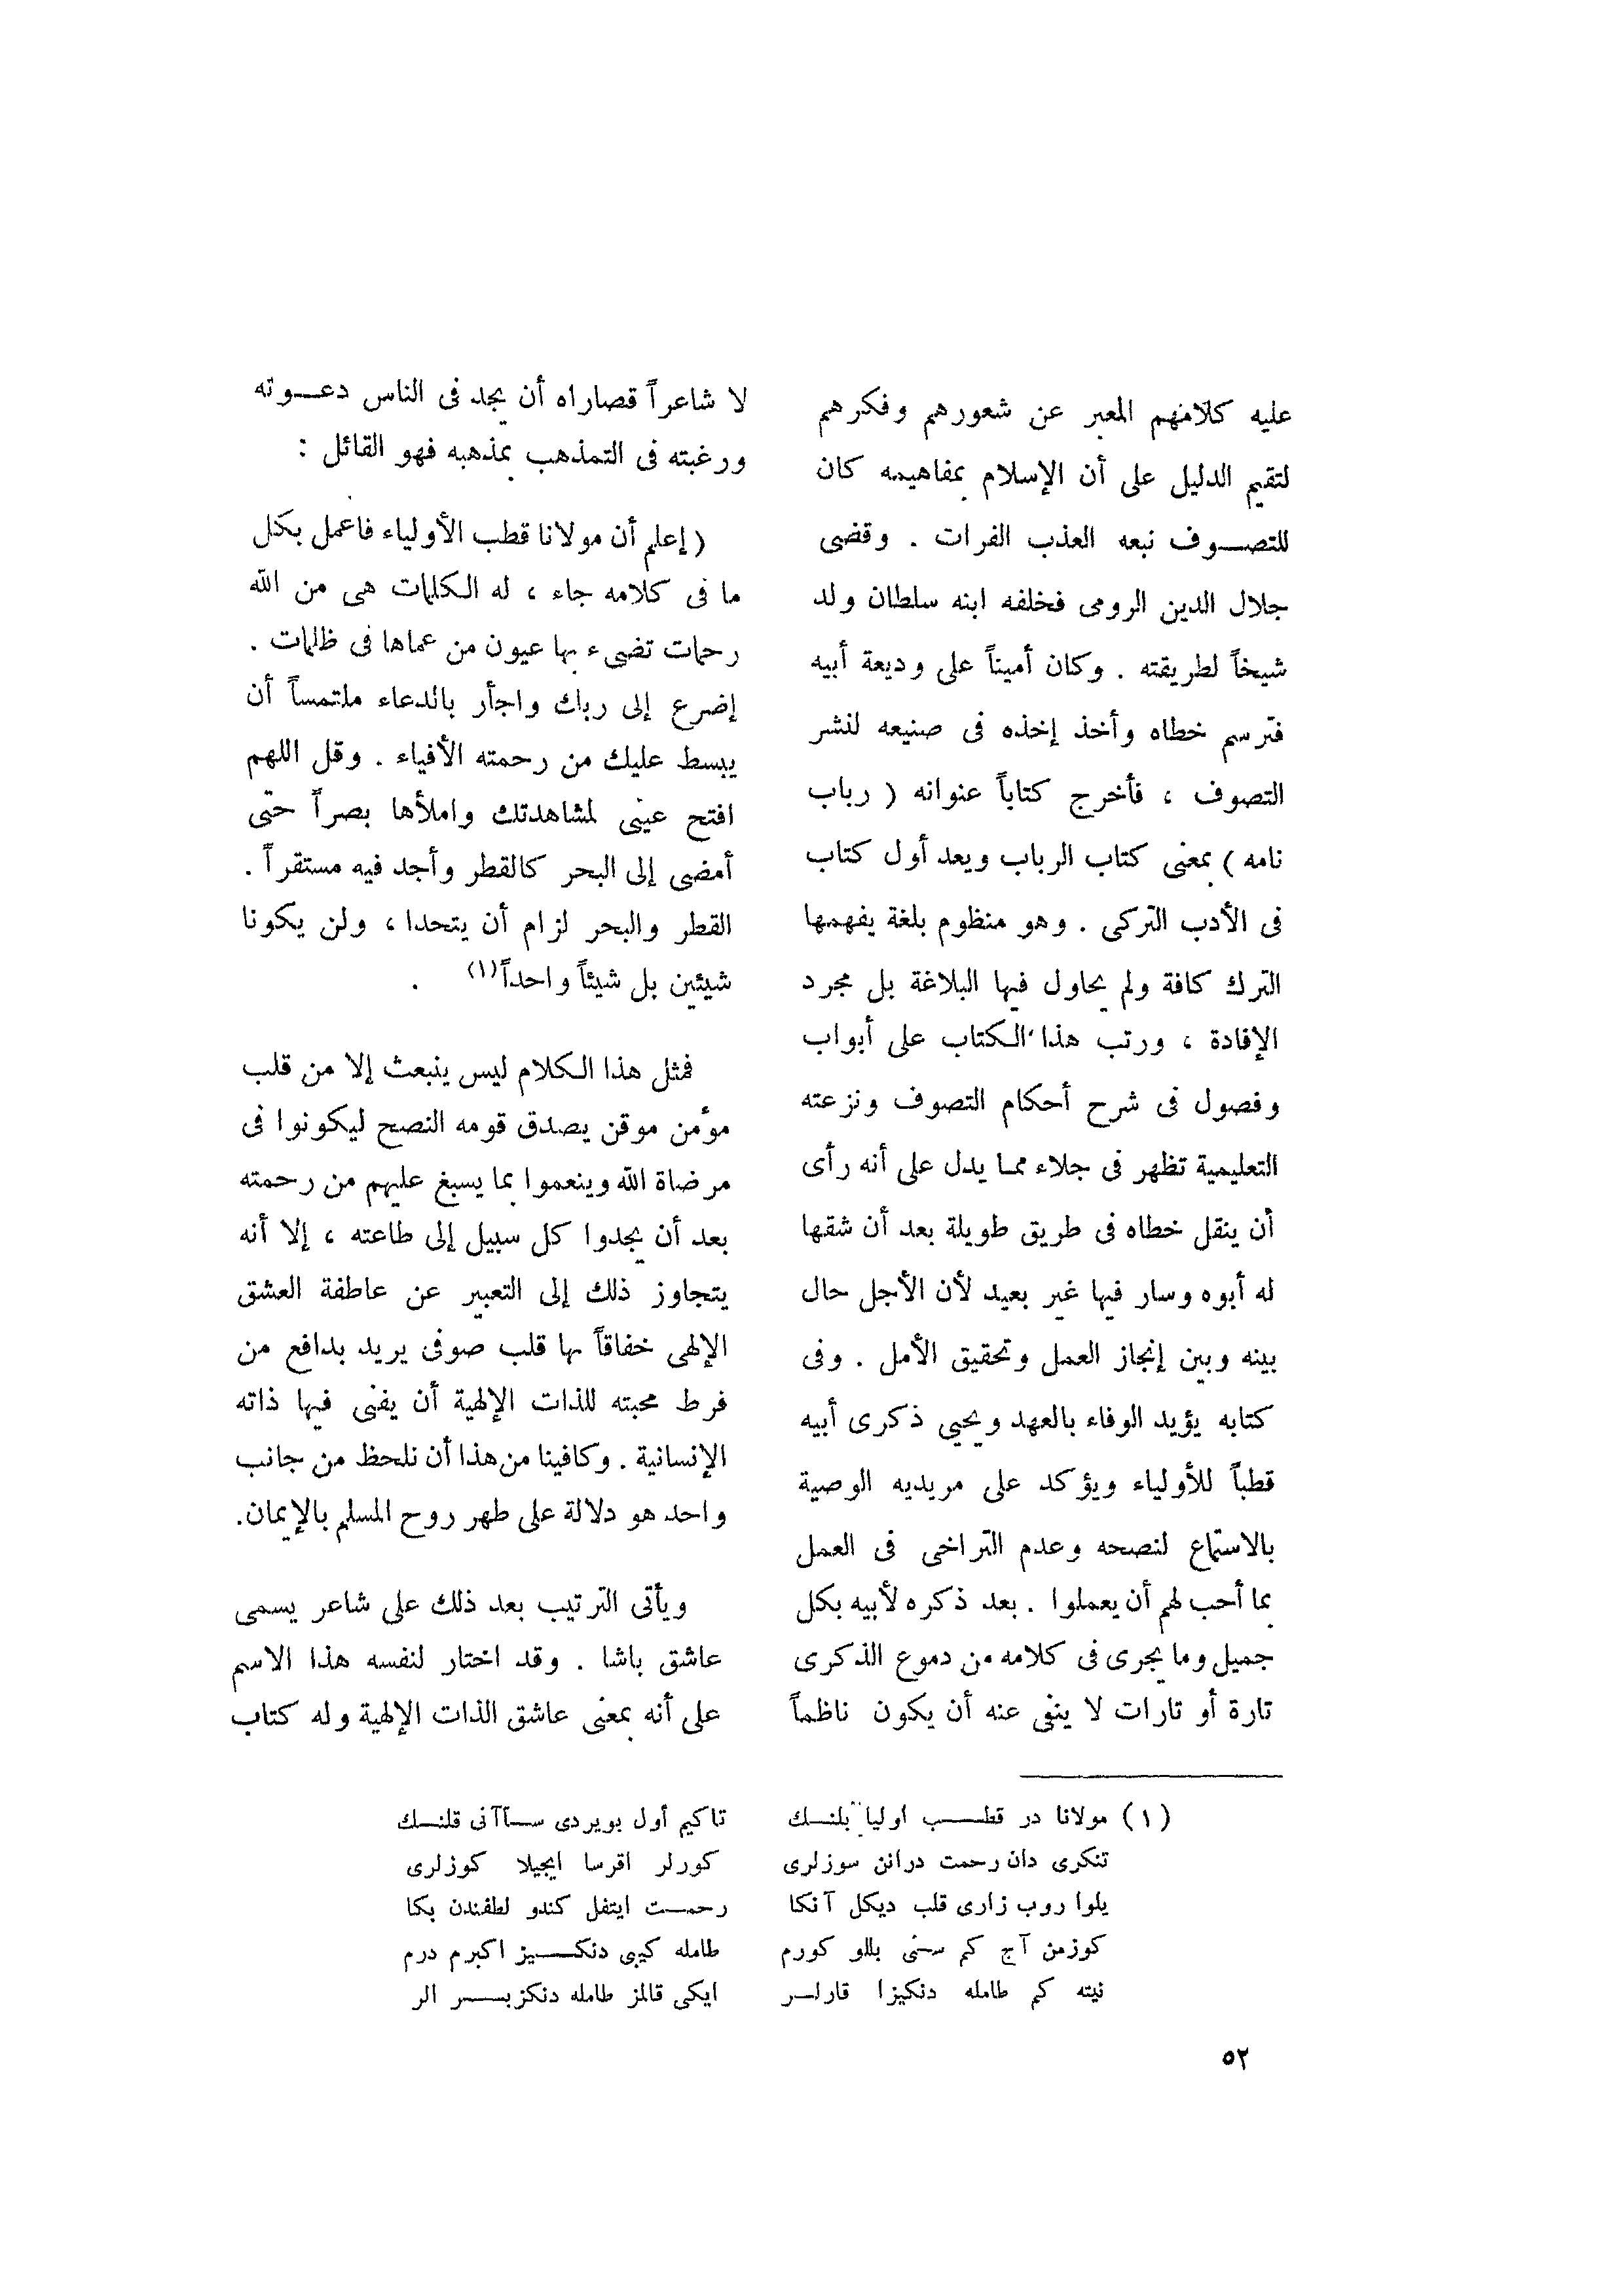 عليه كلامهم المعبر عن شعورهم وفكرهم
لتقيم الدليل على أن الإسلام بمفاهيمه كان
للتصــوف نبعه العذب الفرات . وقضى
جلال الدين الرومى فخلفه ابنه سلطان ولد
شيخاً لطريقته . وكان أميناً على وديعة أبيه
فترسم خطاه وأخذ إخذه فى صنيعه لنشر
التصوف ، فأخرج كتاباً عنوانه ( رباب
نامه ) بمعنى كتاب الرباب ويعد أول كتاب
فى الأدب التركى . وهو منظوم بلغة يفهمها
الترك كافة ولم يحاول فيها البلاغة بل مجرد
الإفادة ، ورتب هذا الكتاب على أبواب
وفصول فى شرح أحكام التصوف ونزعته
التعليمية تظهر فى جلاء مما يدل على أنه رأى
أن ينقل خطاه فى طريق طويلة بعد أن شقها
له أبوه وسار فيها غير بعيد لأن الأجل حال
بينه وبين إنجاز العمل وتحقيق الأمل . وفى
كتابه يؤيد الوفاء بالعهد ويحيى ذكرى أبيه
قطباً للأولياء ويؤكد على مريديه الوصية
بالاستماع لنصحه وعدم التراخى فى العمل
بما أحب لهم أن يعملوا . بعد ذكره لأبيه بكل
جميل وما يجرى فى كلامه من دموع الذكرى
تارة أو تارات لا ينفى عنه أن يكون ناظماً
لا شاعراً قصاراه أن يجد فى الناس دعــوته
ورغبته فى التمذهب بمذهبه فهو القائل :
( إعلم أن مولانا قطب الأولياء فاعمل بكل
ما فى كلامه جاء ، له الكلمات هى من الله
رحمات تضىء بها عيون من عماها فى ظلمات .
إضرع إلى ربك واجأر بالدعاء ملتمساً أن
يبسط عليك من رحمته الأفياء . وقل اللهم
افتح عينى لمشاهدتك واملأها بصراً حتى
أمضى إلى البحر كالقطر وأجد فيه مستقراً .
القطر والبحر لزام أن يتحدا ، ولن يكونا
شيئين بل شيئاً واحداً(١) .
فمثل هذا الكلام ليس ينبعث إلا من قلب
مؤمن موقن يصدق قومه النصح ليكونوا فى
مرضاة الله وينعموا بما يسبغ عليهم من رحمته
بعد أن يجدوا كل سبيل إلى طاعته ، إلا أنه
يتجاوز ذلك إلى التعبير عن عاطفة العشق
الإلهى خفاقاً بها قلب صوفى يريد بدافع من
فرط محبته للذات الإلهية أن يفنى فيها ذاته
الإنسانية . وكافينا من هذا أن نلحظ من جانب
واحد هو دلالة على طهر روح المسلم بالإيمان.
ويأتى الترتيب بعد ذلك على شاعر يسمى
عاشق باشا . وقد اختار لنفسه هذا الاسم
على أنه بمعنى عاشق الذات الإلهية وله كتاب
(١) مولانا در قطـــب اوليا بلنــك تاكيم أول بويردى ســاآنى قلنــك
تنكرى دان رحمت درانن سوزلرى كورلر اقرسا ايجيلا كوزلرى
يلوا روب زارى قلب ديكل آنكا رحمــت ايتفل كندو لطفندن بكا
كوزمن آج كم سنى بللو كورم طامله كيبى دنكــيز اكبرم درم
نيته كم طامله دنكيزا قارلــر ايكى قالمز طامله دنكزبــر الر
٥٢